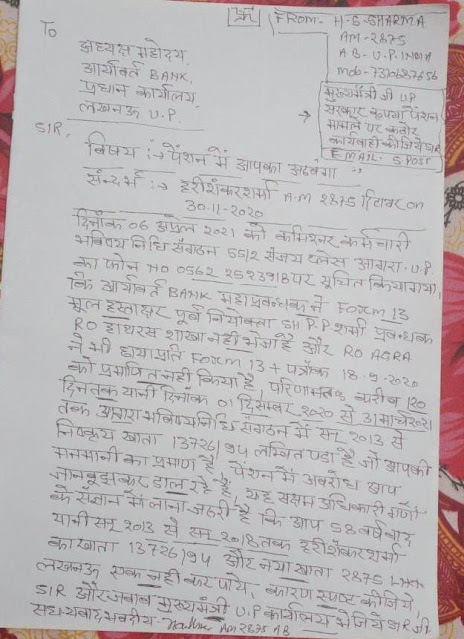 FROM- H-S-SHARMA
AM-2875
AB-U.P.INDIA
To
अध्यक्ष महोदय,
आर्यावर्त BANK,
प्रधान कार्यालय
लखनऊ U.P.
मुख्यमंत्री जी UP
सरकार कृपया पेंशन
मामले पर कठोर
कार्यवाही कीजियेगा
EMAIL- S POST
SIR,
विषय :→ पेंशन में आपका अडंगा
सन्दर्भ :→ हरीशंकर शर्मा A.M 2875 रिटायर on
30-11-2020
दिनांक 06 अप्रैल 2021 को कमिश्नर कर्मचारी
भविष्य निधि संगठन 55/2 संजय प्लेस आगरा-U.P
का फोन NO पर सूचित किया गया,
कि आर्यावर्त BANK महाप्रबन्धक ने FORM 13
मूल हस्ताक्षर पूर्व नियोक्ता SH P.P शर्मा प्रबन्धक
RO हाथरस शाखा नहीं भेजा है और RO AGRA
ने भी छायाप्रति FORM 13 + पत्रांक 18-9-2020
को प्रमाणित नहीं किया है, परिणामतः करीब 120
दिन तक यानी दिनांक 01 दिसम्बर 2020 से 31 मार्च 2021
तक आगरा भविष्य निधि संगठन में सन् 2013 से
निष्क्रय खाता 13726/94 लम्बित पड़ा है जो आपकी
मनमानी का प्रमाण है, पेंशन में अवरोध आप
जानबूझकर डाल रहे हैं, यह सक्षम अधिकारी
के संज्ञान में लाना जरूरी है कि आप 58 वर्ष बाद
यानी सन् 2013 से सन् 2018 तक हरीशंकर शर्मा
का खाता 13726/94 और नया खाता 2875
लखनऊ एक नहीं कर पाये, कारण स्पष्ट कीजिये,
SIR और जवाब मुख्यमंत्री U.P कार्यालय भेजिये SIR जी
सधन्यवाद भवदीय AM 2875 AB